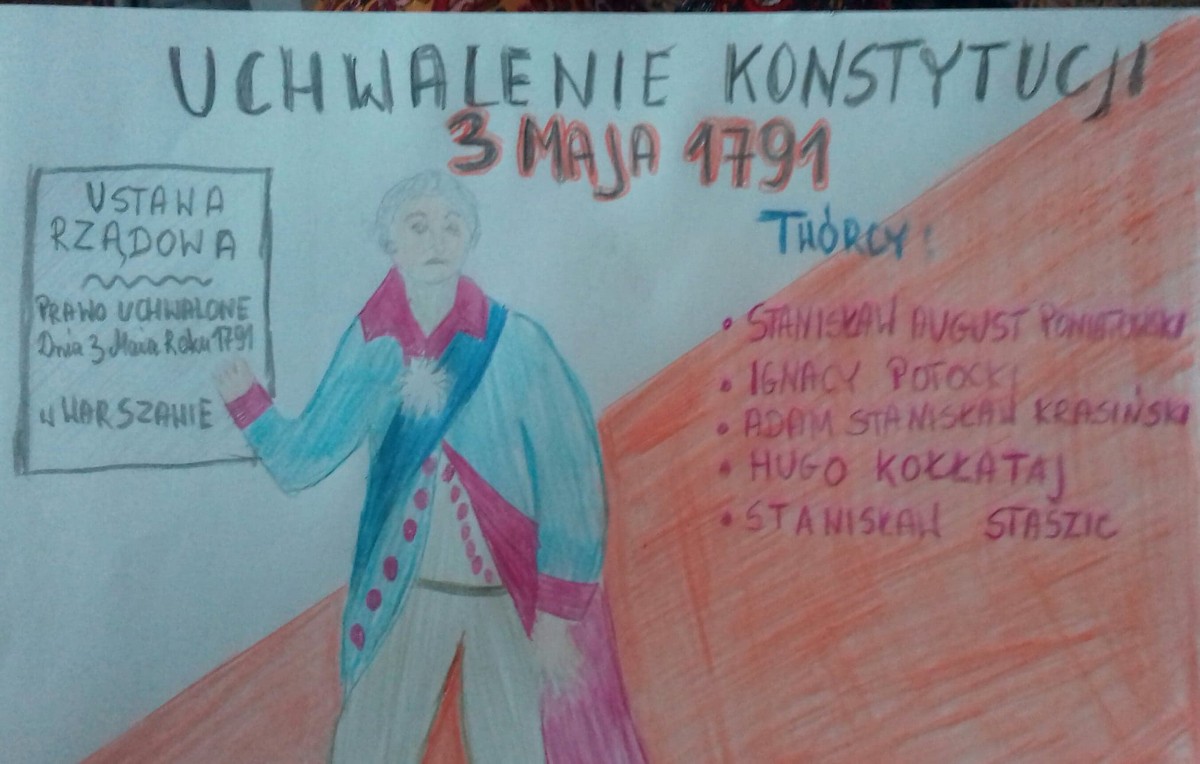 UCHWALENIE KONSTYTUCJI
3 MAJA 1791
USTAWA
RZĄDOWA
PRAWO UCHWALONE
Dnia 3 Maia Roku 1791
w WARSZAWIE
THÓRCY:
• STANISŁAW AUGUST PONIATOWSKI
• IGNACY POTOCKI
• ADAM STANISŁAW KRASIŃSKI
• HUGO KOŁŁATAJ
• STANISŁAW STASZIC